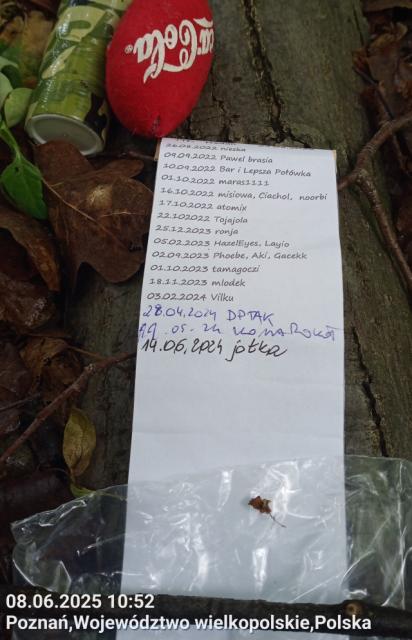 Coca-Cola
26.08.2022 nieska
09.09.2022 Pawel brasia
10.09.2022 Bar i Lepsza Połówka
01.10.2022 maras1111
16.10.2022 misiowa, Ciachol, noorbi
17.10.2022 atomix
22.102022 Tojajola
25.12.2023 ronja
05.02.2023 HazelEyes, Layio
02.09.2023 Phoebe, Aki, Gacekk
01.10.2023 tamagoczi
18.11.2023 mlodek
03.02.2024 Vilku
28.04.2024 DPTAK
05.24
14.06.2024 jotka
08.06.2025 10:52
Poznań,Województwo wielkopolskie,Polska